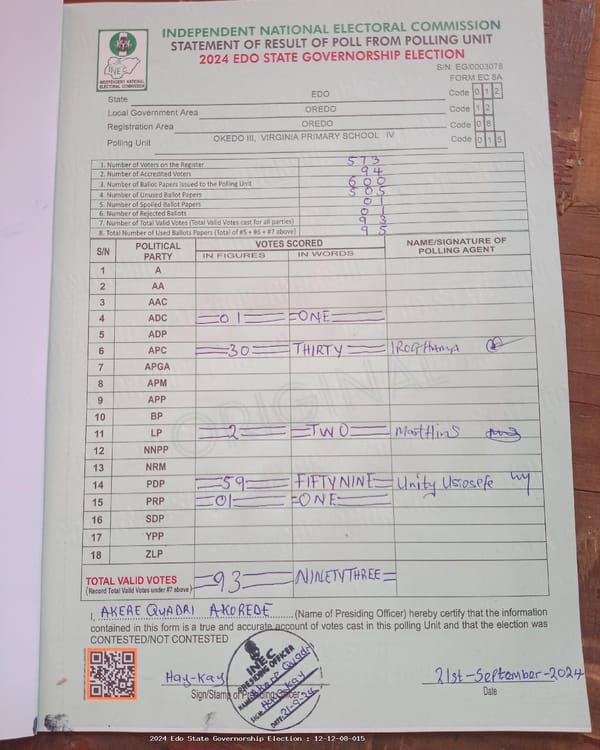 INDEPENDENT NATIONAL ELECTORAL COMMISSION
STATEMENT OF RESULT OF POLL FROM POLLING UNIT
2024 EDO STATE GOVERNORSHIP ELECTION
INEC
INDEPENDENT NATIONAL ELECTORAL COMMISSION
S/N: EG/0003078
FORM EC 8A
State EDO Code 0 1 2
Local Government Area OREDO Code 1 2
Registration Area OREDO Code 0 8
Polling Unit OKEDO III, VIRGINIA PRIMARY SCHOOL IV Code 0 1 5
1. Number of Voters on the Register 573
2. Number of Accredited Voters 94
3. Number of Ballot Papers Issued to the Polling Unit 600
4. Number of Unused Ballot Papers 505
5. Number of Spoiled Ballot Papers 01
6. Number of Rejected Ballots 01
7. Number of Total Valid Votes (Total Valid Votes cast for all parties) 93
8. Total Number of Used Ballots Papers (Total of #5 + #6 + #7 above) 95
S/N POLITICAL PARTY VOTES SCORED NAME/SIGNATURE OF POLLING AGENT
IN FIGURES IN WORDS
1 A
2 AA
3 AAC
4 ADC 01 ONE
5 ADP
6 APC 30 THIRTY
7 APGA
8 APM
9 APP
10 BP
11 LP 2 TWO
12 NNPP
13 NRM
14 PDP 59 FIFTYNINE Unity
15 PRP 01 ONE
16 SDP
17 YPP
18 ZLP
ORIGINAL
TOTAL VALID VOTES 93 NINETYTHREE
(Record Total Valid Votes under #7 above)
I, AKERE QUADRI AKOREDE (Name of Presiding Officer) hereby certify that the information
contained in this form is a true and accurate account of votes cast in this polling Unit and that the election was
CONTESTED/NOT CONTESTED
Hay-Kay 21st-September-2024
Sign/Stamp of Presiding Officer Date
INEC
PRESIDING OFFICER
NAME
SIGN
DATE 21-9-24
2024 Edo State Governorship Election : 12-12-08-015